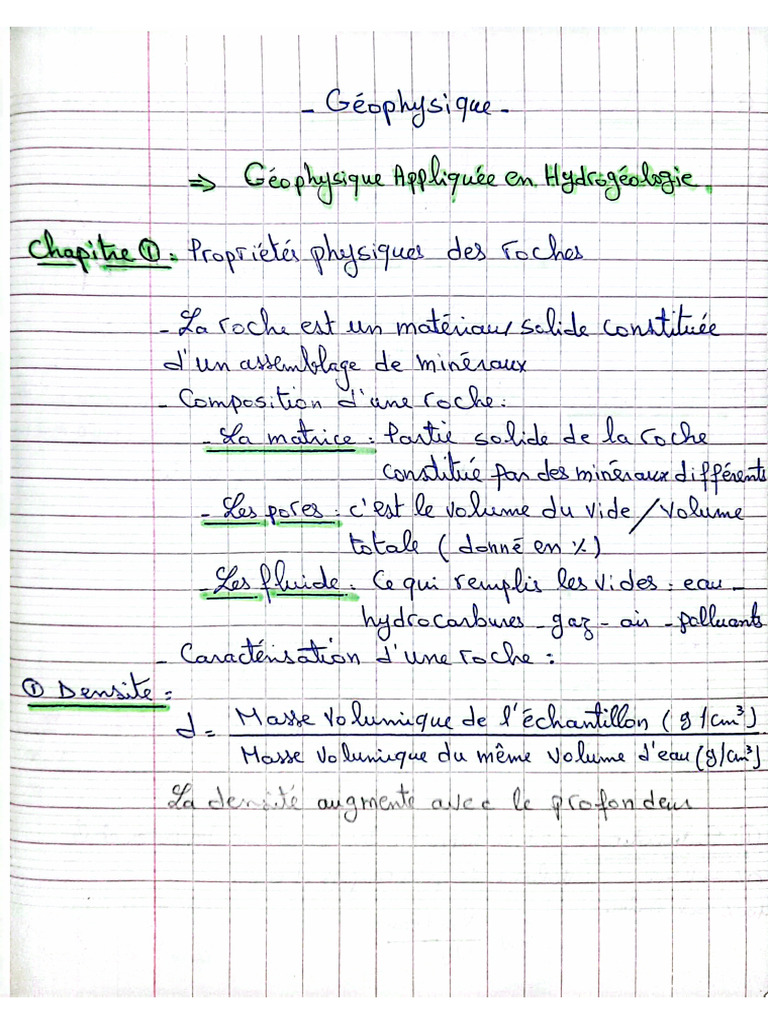 - Géophysique -
⇒ Géophysique Appliquée en Hydrogéologie.
Chapitre ① : Propriétés physiques des roches
- La roche est un matériaux solide constituée
d'un assemblage de minéraux
- Composition d'une roche :
- La matrice : Partie solide de la roche
constitué par des minéraux différents
- Les pores : c'est le volume du vide / volume
totale ( donné en % )
- Les fluide : Ce qui remplis les vides : eau -
hydrocarbures - gaz - air - polluants
- Caractérisation d'une roche :
① Densite :
d = Masse volumique de l'échantillon ( g/cm³ )
Masse volumique du même volume d'eau ( g/cm³ )
La densité augmente avec le profondeur